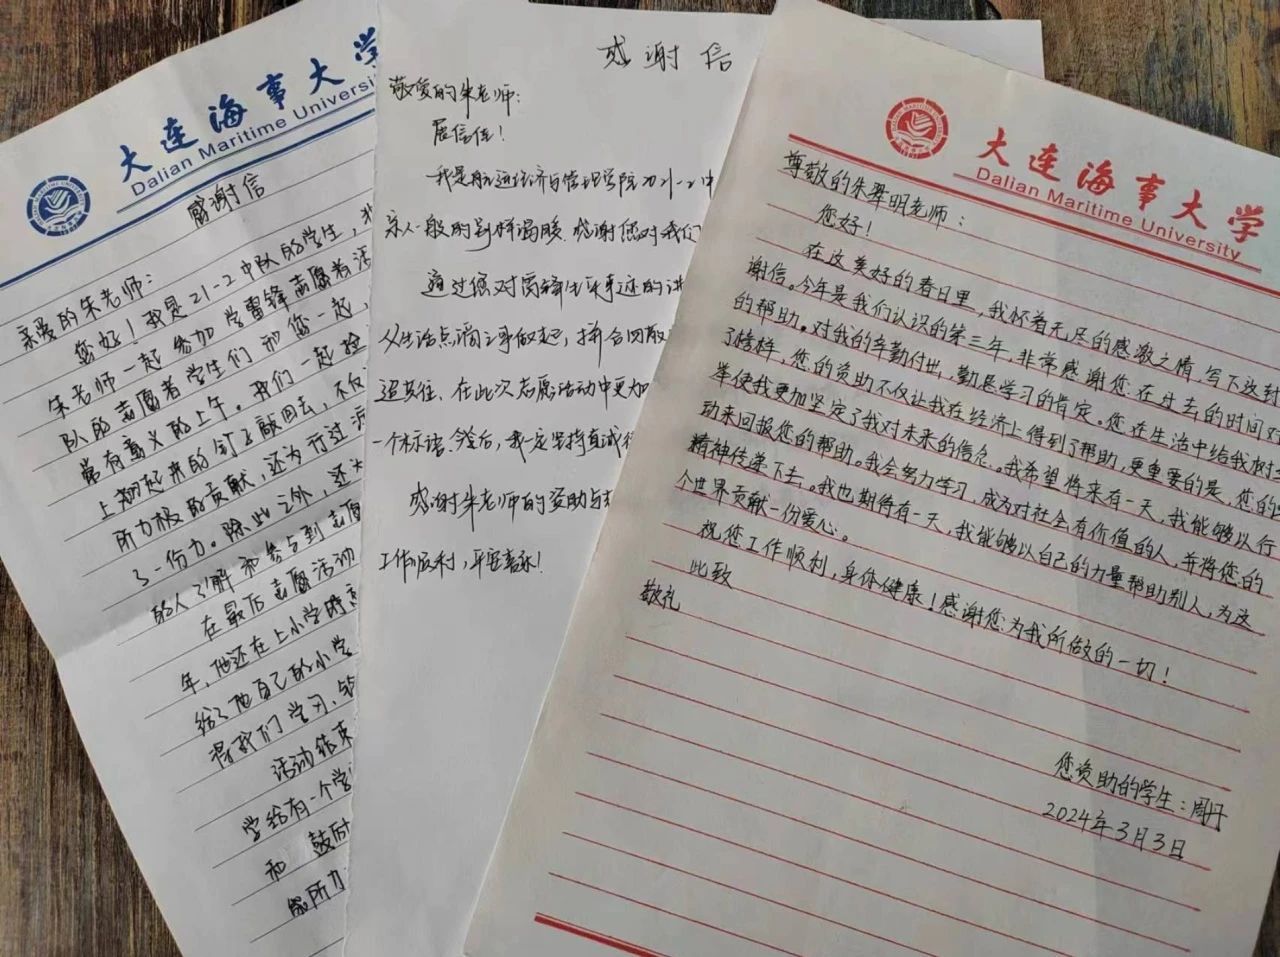 大连海事大学
Dalian Maritime Universi
感谢信
亲爱的朱老师：
您好！我是21-2中队的学生，我
朱老师一起参加学雷锋志愿者活
队的志愿者学生们和您一起，
常有意义的上午。我们一起捡
上翘起来的钉子敲回去，不仅
所力极的贡献，还为行过
了一份力。除此之外，还
的人了解和参与到志愿
在最后志愿活动
年，他还在上小学时
给了他自己的小学
将我们学习、
活动结束
学给有一个学
和鼓励
能所力
感谢信
敬爱的朱老师：
展信佳！
我是航运经济与管理学院21-2中
亲人一般的别样温暖.感谢您对我们
通过您对雷锋生平事迹的讲
从生活点滴之事做起，拼
在此次志愿活动中更加
一个标语.今后，我一定坚持
感谢朱老师的资助与
工作顺利，平安喜乐！
大连海事大学
Dalian Maritime University
尊敬的朱翠明老师：
您好！
在这美好的春日里，我怀着无尽的感激之情，写下这封
谢信。今年是我们认识的第三年，非常感谢您在过去的时间对
的帮助。对我的辛勤付出，勤恳学习的肯定。您在生活中给我树立
了榜样，您的资助不仅让我在经济上得到了帮助，更重要的是，您的
举使我更加坚定了我对未来的信念。我希望将来有一天，我能够以行
动来回报您的帮助。我会努力学习，成为对社会有价值的人，并将您的
精神传递下去。我也期待有一天，我能够以自己的力量帮助别人，为这
个世界贡献一份爱心。
祝您工作顺利，身体健康！感谢您为我所做的一切！
此致
敬礼
您资助的学生：周丹
2024年3月3日